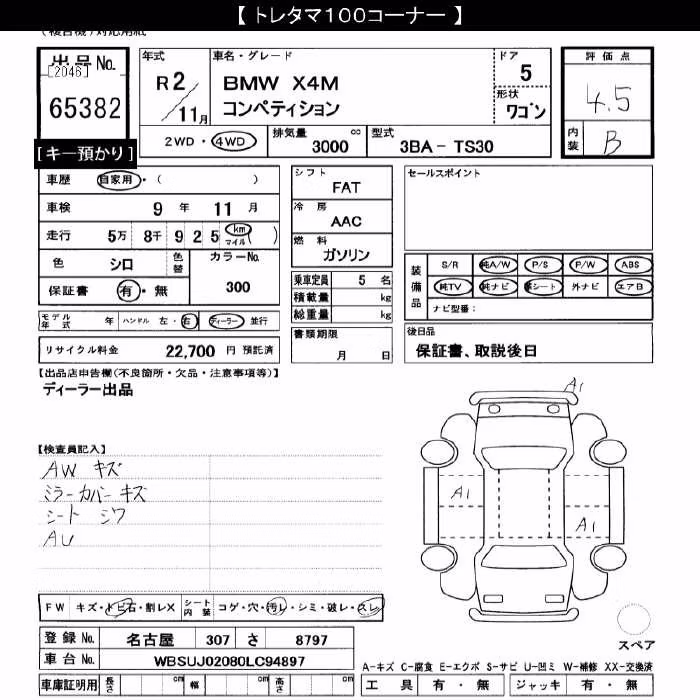 【 トレタマ100コーナー 】
出品No.
[2046]
65382
[キー預かり]
年式
R2/11月
車名・グレード
BMW X4M
コンペティション
ドア
5
形状
ワゴン
2WD・4WD
排気量
3000 cc
型式
3BA - TS30
評価点
4.5
内装
B
車歴 自家用・( )
車検 9年 11月
走行 5万 8千 9 2 5 km マイル ( )
色 シロ 色替 カラーNo.
300
保証書 有・無
モデル年式 年 ハンドル 左・右 ディーラー 並行
リサイクル料金 22,700 円 預託済
シフト
FAT
冷房
AAC
燃料
ガソリン
乗車定員 5 名
積載量 kg
総重量 kg
書類期限
月 日
セールスポイント
装備品
S/R 純A/W P/S P/W ABS
純TV 純ナビ 革シート 外ナビ エアB
ナビ型番:
後日品
保証書、取説後日
【出品店申告欄(不良箇所・欠品・注意事項等)】
ディーラー出品
【検査員記入】
AW キズ
ミラーカバー キズ
シート シワ
AU
A1
A1
A1
FW キズ・トビ石・割レX シート内装 コゲ・穴・汚レ・シミ・破レ・スレ
登録No. 名古屋 307 さ 8797
車台No. WBSUJ02080LC94897
車庫証明用 長さ cm 幅 cm 高さ cm
スペア
A-キズ C-腐食 E-エクボ S-サビ U-凹ミ W-補修 XX-交換済
工具 有・無 ジャッキ 有・無